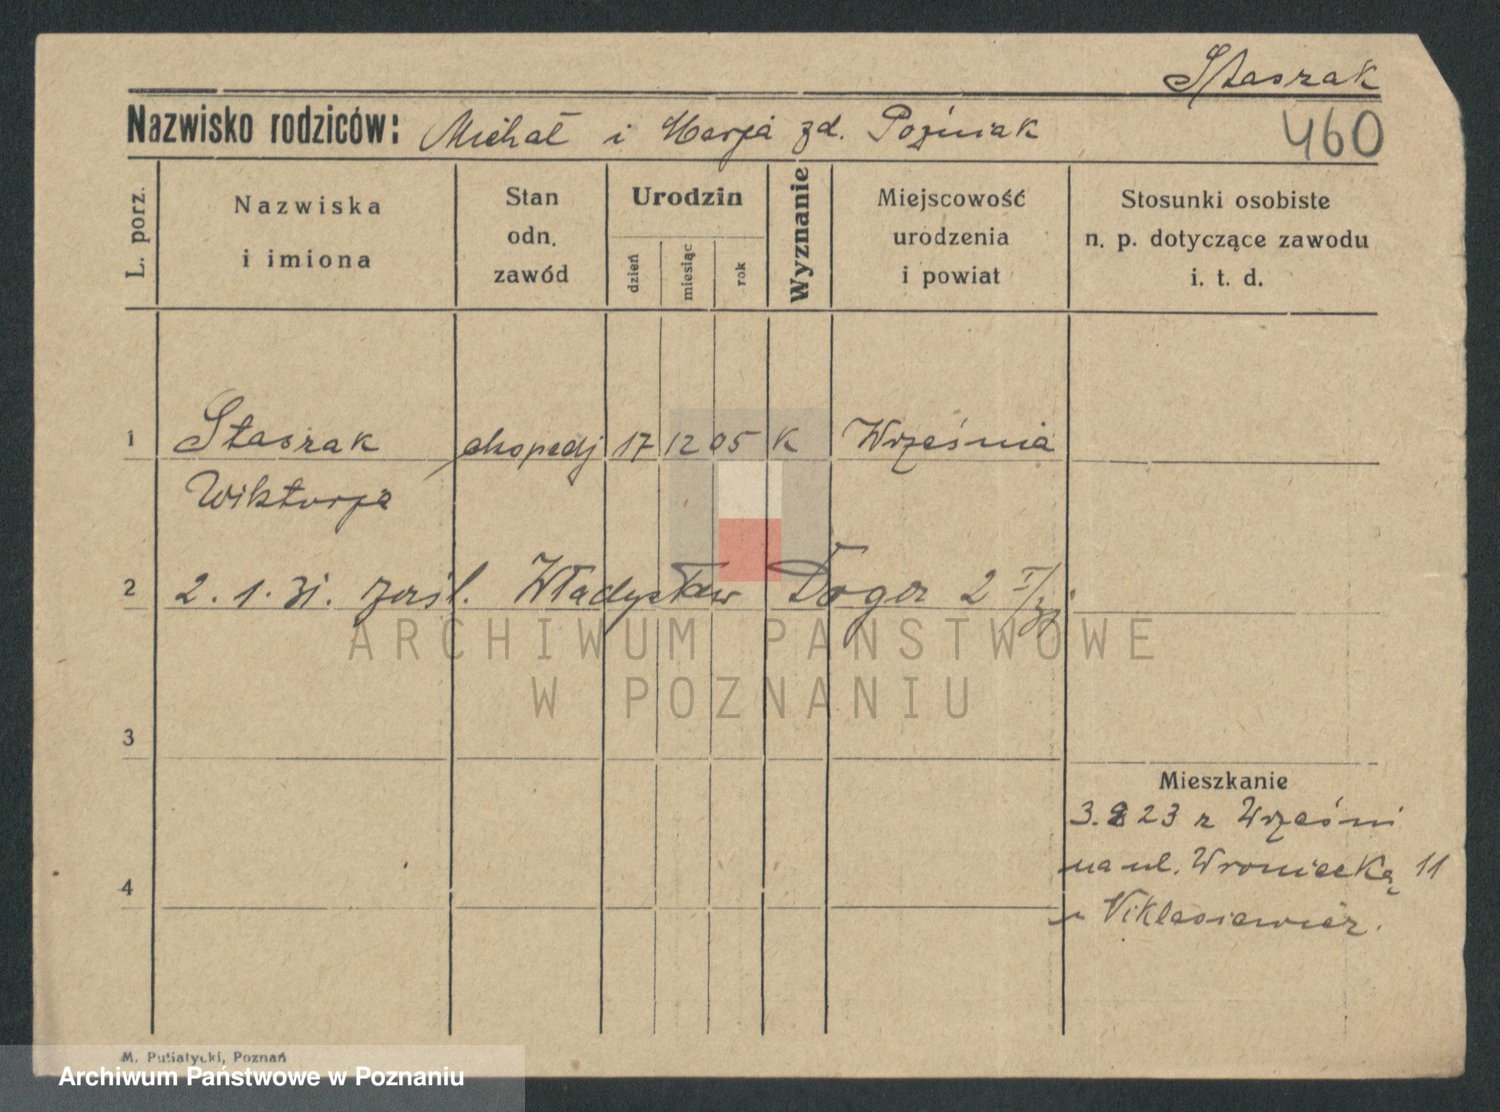 Staszak
Nazwisko rodziców: Michał i Marja zd. Poźniak
460
L. porz.
Nazwiska
i imiona
Stan
odn.
zawód
Urodzin
dzień
miesiąc
rok
Wyznanie
Miejscowość
urodzenia
i powiat
Stosunki osobiste
n. p. dotyczące zawodu
i. t. d.
1 Staszak ekspedj 17 12 05 K Września
Wiktorja
2 2.1.31. zaśl. Władysław 2 I/31
ARCHIWUM PAŃSTWOWE
W POZNANIU
3
Mieszkanie
3. 23 z Wrześni
na ul. Wroniecką 11
4
M. Putiatycki, Poznań
Archiwum Państwowe w Poznaniu